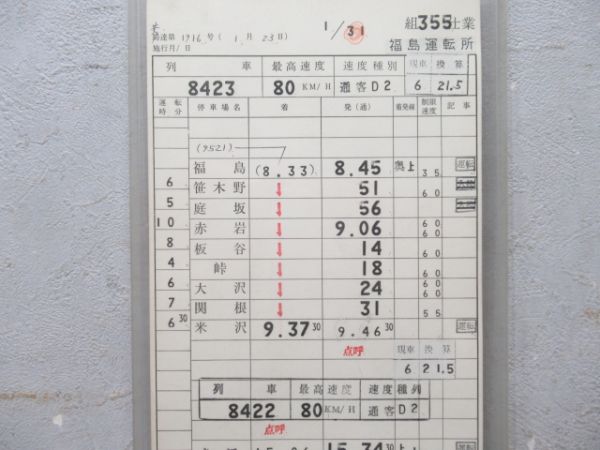 1/31
組355仕業
達第1716号(1月23日)
施行月/日
福島運転所
列車 最高速度 速度種別 現車 換算
8423 80KM/H 通客D2 6 21.5
運転時分 停車場名 着 発(通) 着発線 制限速度 記事
(9521)
福島 (8.33) 8.45 奥上 35 運転
6 笹木野 ↓ 51 60
5 庭坂 ↓ 56
10 赤岩 ↓ 9.06 60 60
8 板谷 ↓ 14 60
4 峠 ↓ 18 60
6 大沢 ↓ 24 60 60
7 関根 ↓ 31 55
6 30 米沢 9.37 30 9.46 30 運転
点呼 現車 換算
6 21.5
列車 最高速度 速度種別
8422 80KM/H 通客D2
点呼